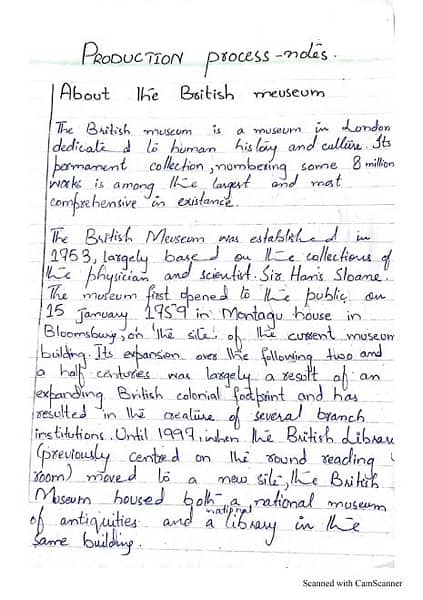 PRODUCTION process-notes.
About the British meuseum
The British museum is a museum in London
dedicate d to human history and culture. Its
permament collection, numbering some 8 million
works is among the largest and most
comprehensive in existance.
The British Meuseum was established in
1953, largely based on the collections of
the physician and scientist. Sir Hans Sloane.
The museum first opened to the public on
15 january 1959 in Montagu house in
Bloomsbury, on the site of the current museum
building. Its expansion over the following two and
a half centuries was largely a result of an
expanding British colonial footprint and has
resulted in the creature of several branch
institutions. Until 1997, when the British Librau
(previously centred on the round reading
room) moved to a new site, the British
Museum housed both a national museum
of antiquities and a national library in the
same building.
Scanned with CamScanner